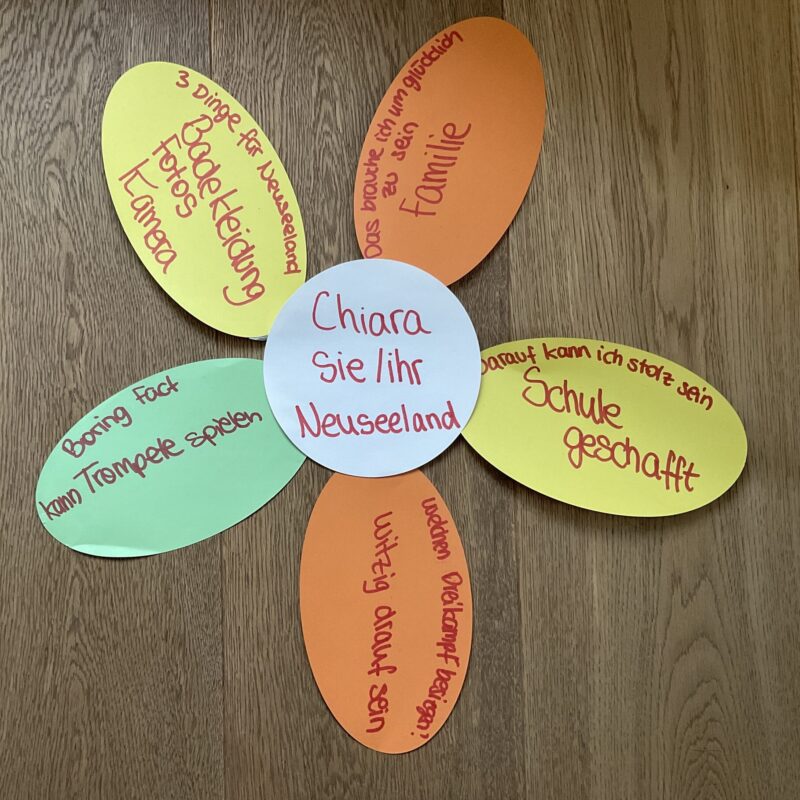 Chiara
Sie/ihr
Neuseeland
3 Dinge für Neuseeland
Badekleidung
Fotos
Kamera
Das brauche ich um glücklich
zu sein
Familie
Darauf kann ich stolz sein
Schule
geschafft
welchen Dreikampf besiegen?
witzig drauf sein
Boring Fact
kann Trompete spielen